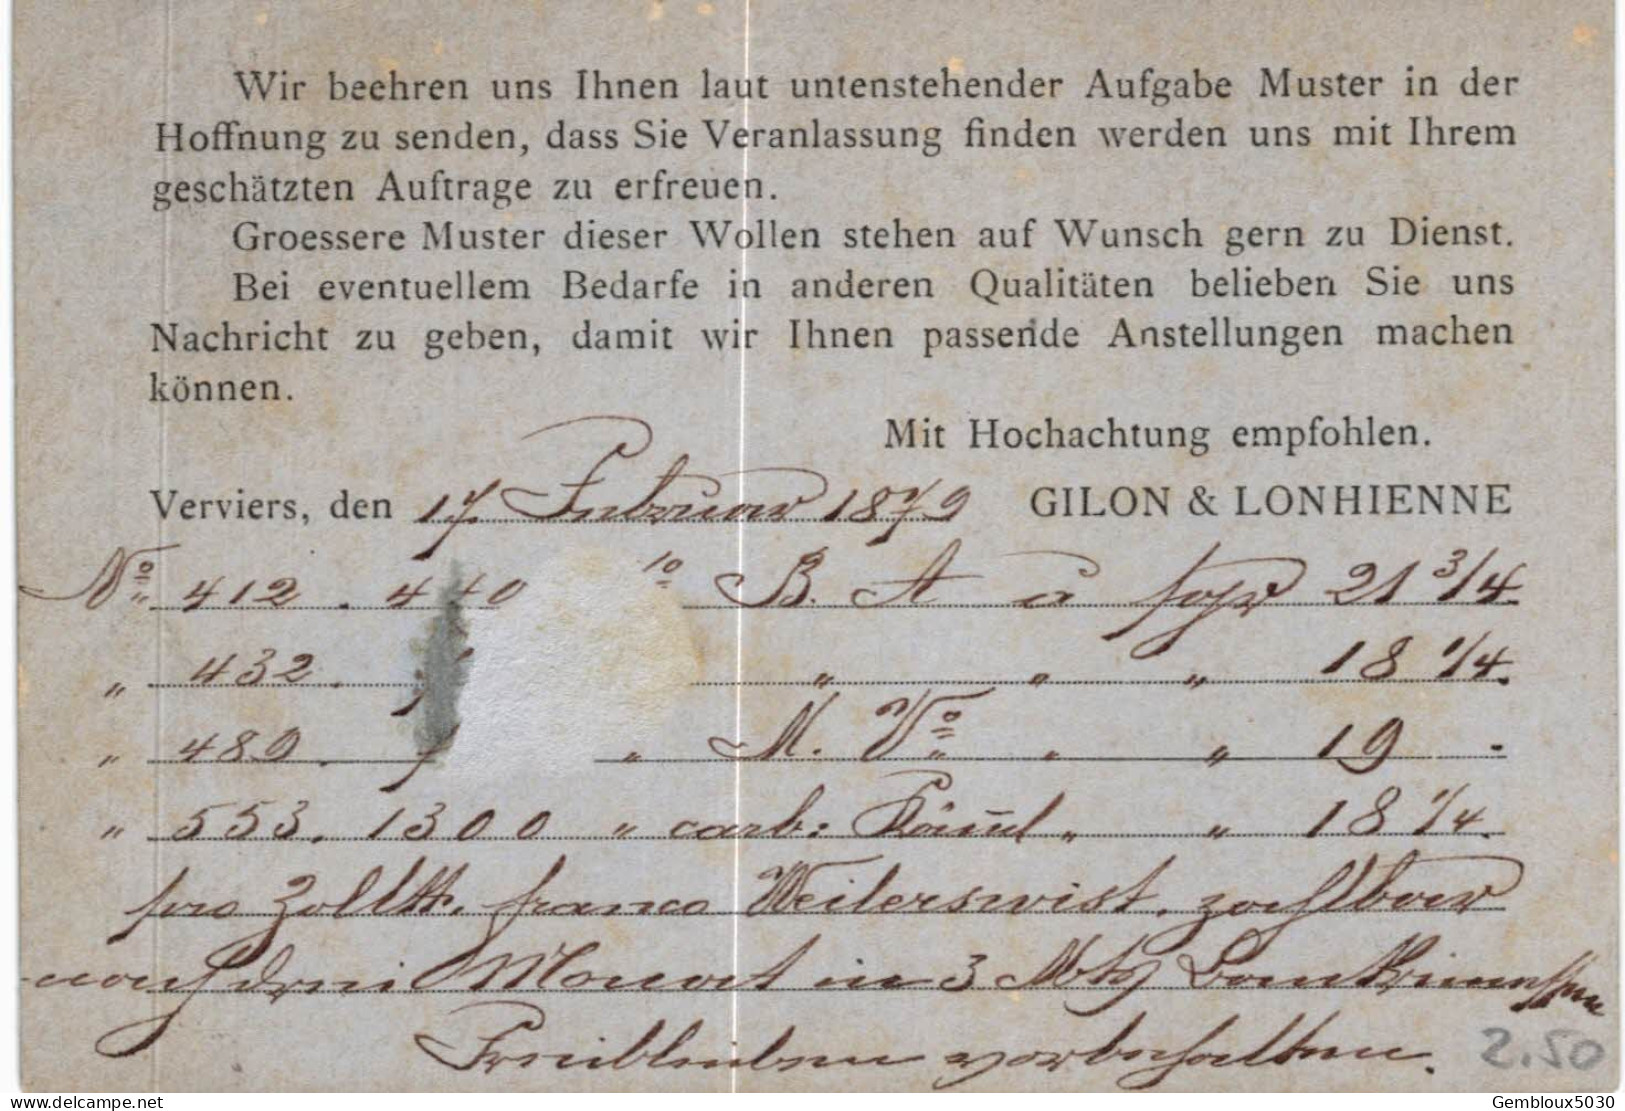 Wir beehren uns Ihnen laut untenstehender Aufgabe Muster in der
Hoffnung zu senden, dass Sie Veranlassung finden werden uns mit Ihrem
geschätzten Auftrage zu erfreuen.
Groessere Muster dieser Wollen stehen auf Wunsch gern zu Dienst.
Bei eventuellem Bedarfe in anderen Qualitäten belieben Sie uns
Nachricht zu geben, damit wir Ihnen passende Anstellungen machen
können.
Mit Hochachtung empfohlen.
Verviers, den 17 Februar 1879 GILON & LONHIENNE
No 412. B. A à 21 3/4
" 432. " " " 18 1/4.
" 489. " M. Vo " " 19 -
" 553. 1300 " carb: " " 18 1/4.
pro Zollctr. franco Weilerswist, zahlbar
nach drei Monat in 3 Mts
Freibleiben vorbehalten.
2.50
delcampe.net
Gembloux5030